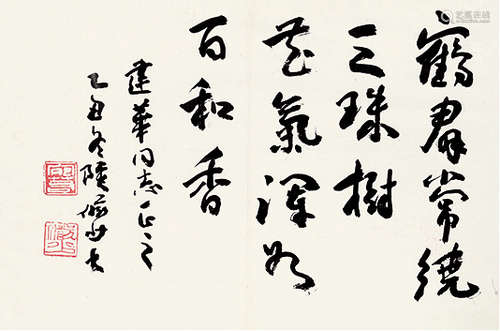 鶴群常繞
三珠樹
花氣渾如
百和香
建華同志正之
乙丑冬陸儼少書